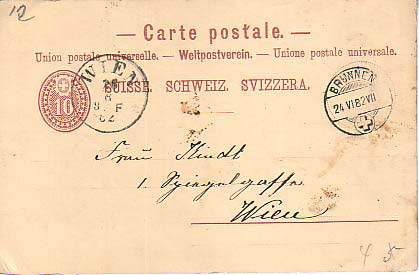 12
— Carte postale. —
Union postale universelle. — Weltpostverein. — Unione postale universale.
SUISSE. SCHWEIZ. SVIZZERA.
10
WIEN
8 F
82
BRUNNEN
24 VI 82 VII
Frau Kindt
1. Spiegelgasse
Wien